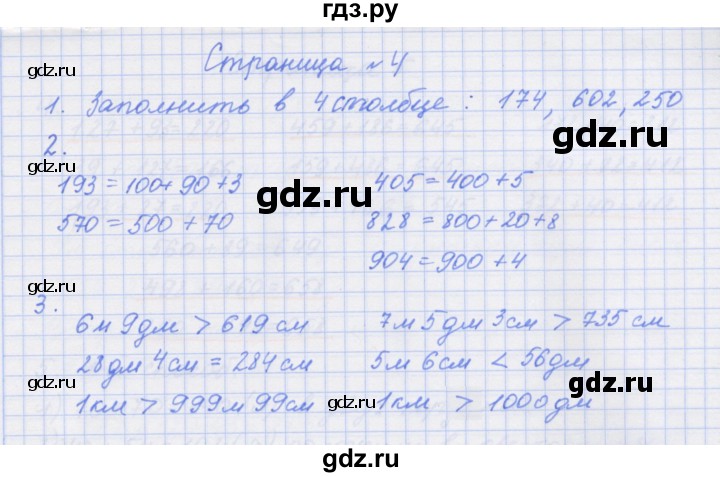 гдз.ру
Страница №4
gdz.ru gdz.ru
1. Заполнить в 4 столбце : 174, 602, 250
2.
gdz.ru gdz.ru
193 = 100 + 90 + 3 405 = 400 + 5
gdz.ru
570 = 500 + 70 828 = 800 + 20 + 8
904 = 900 + 4
gdz.ru gdz.ru
3.
6 м 9 дм > 619 см 7 м 5 дм 3 см > 735 см
gdz.ru
28 дм 4 см = 284 см 5 м 6 см < 56 дм
gdz.ru gdz.ru
1 км > 999 м 99 см 1 км > 1000 дм
gdz.ru
gdz.ru